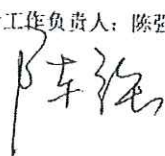 工作负责人：陈强
陈强